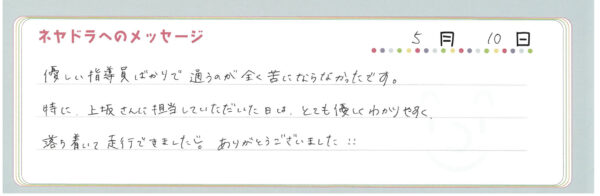 ネヤドラへのメッセージ 5月10日
優しい指導員ばかりで通うのが全く苦にならなかったです。
特に、上坂さんに担当していただいた日は、とても優しくわかりやすく、
落ち着いて走行できました。ありがとうございました